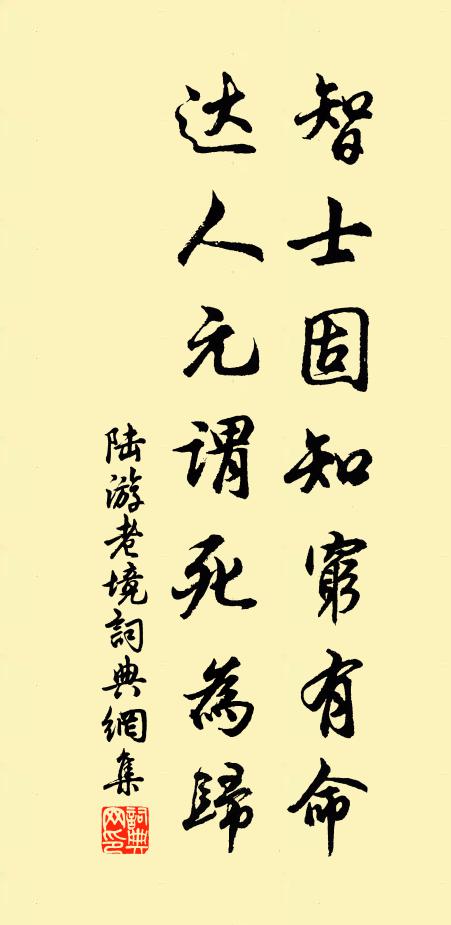 智士固知窮有命
达人元謂死為歸
陆游老境詞典網集
詞典网印